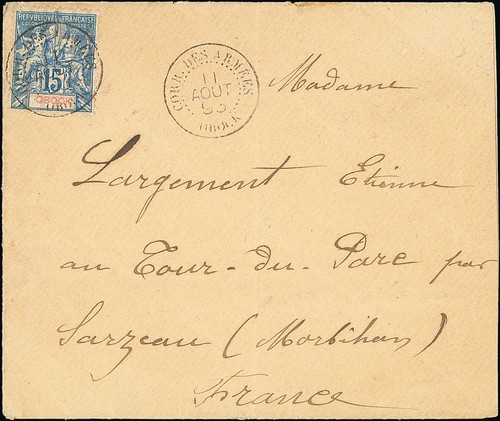 RÉPUBLIQUE FRANÇAISE
COLONIES POSTES
15
OBOCK
CORR. DES ARMÉES
11
AOUT
OBOCK
Madame
Largement Etienne
au Tour-du-Parc par
Sarzeau (Morbihan)
France